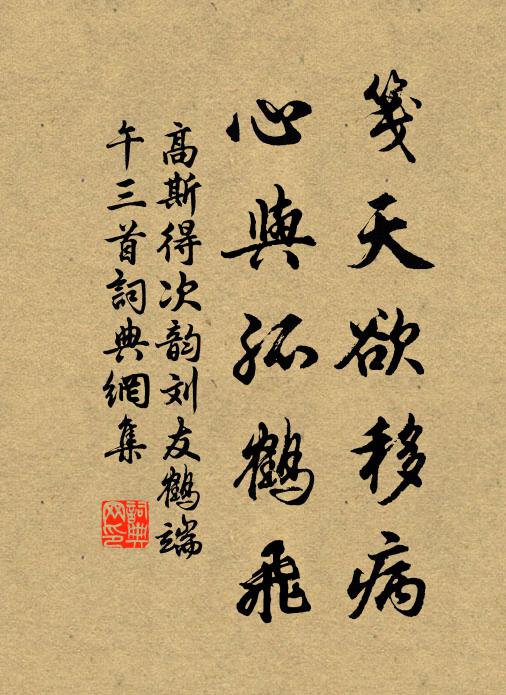 箋天欲移病
心與孤鶴飛
高斯得次韵刘友鶴端
午三首詞典網集
詞典
网印